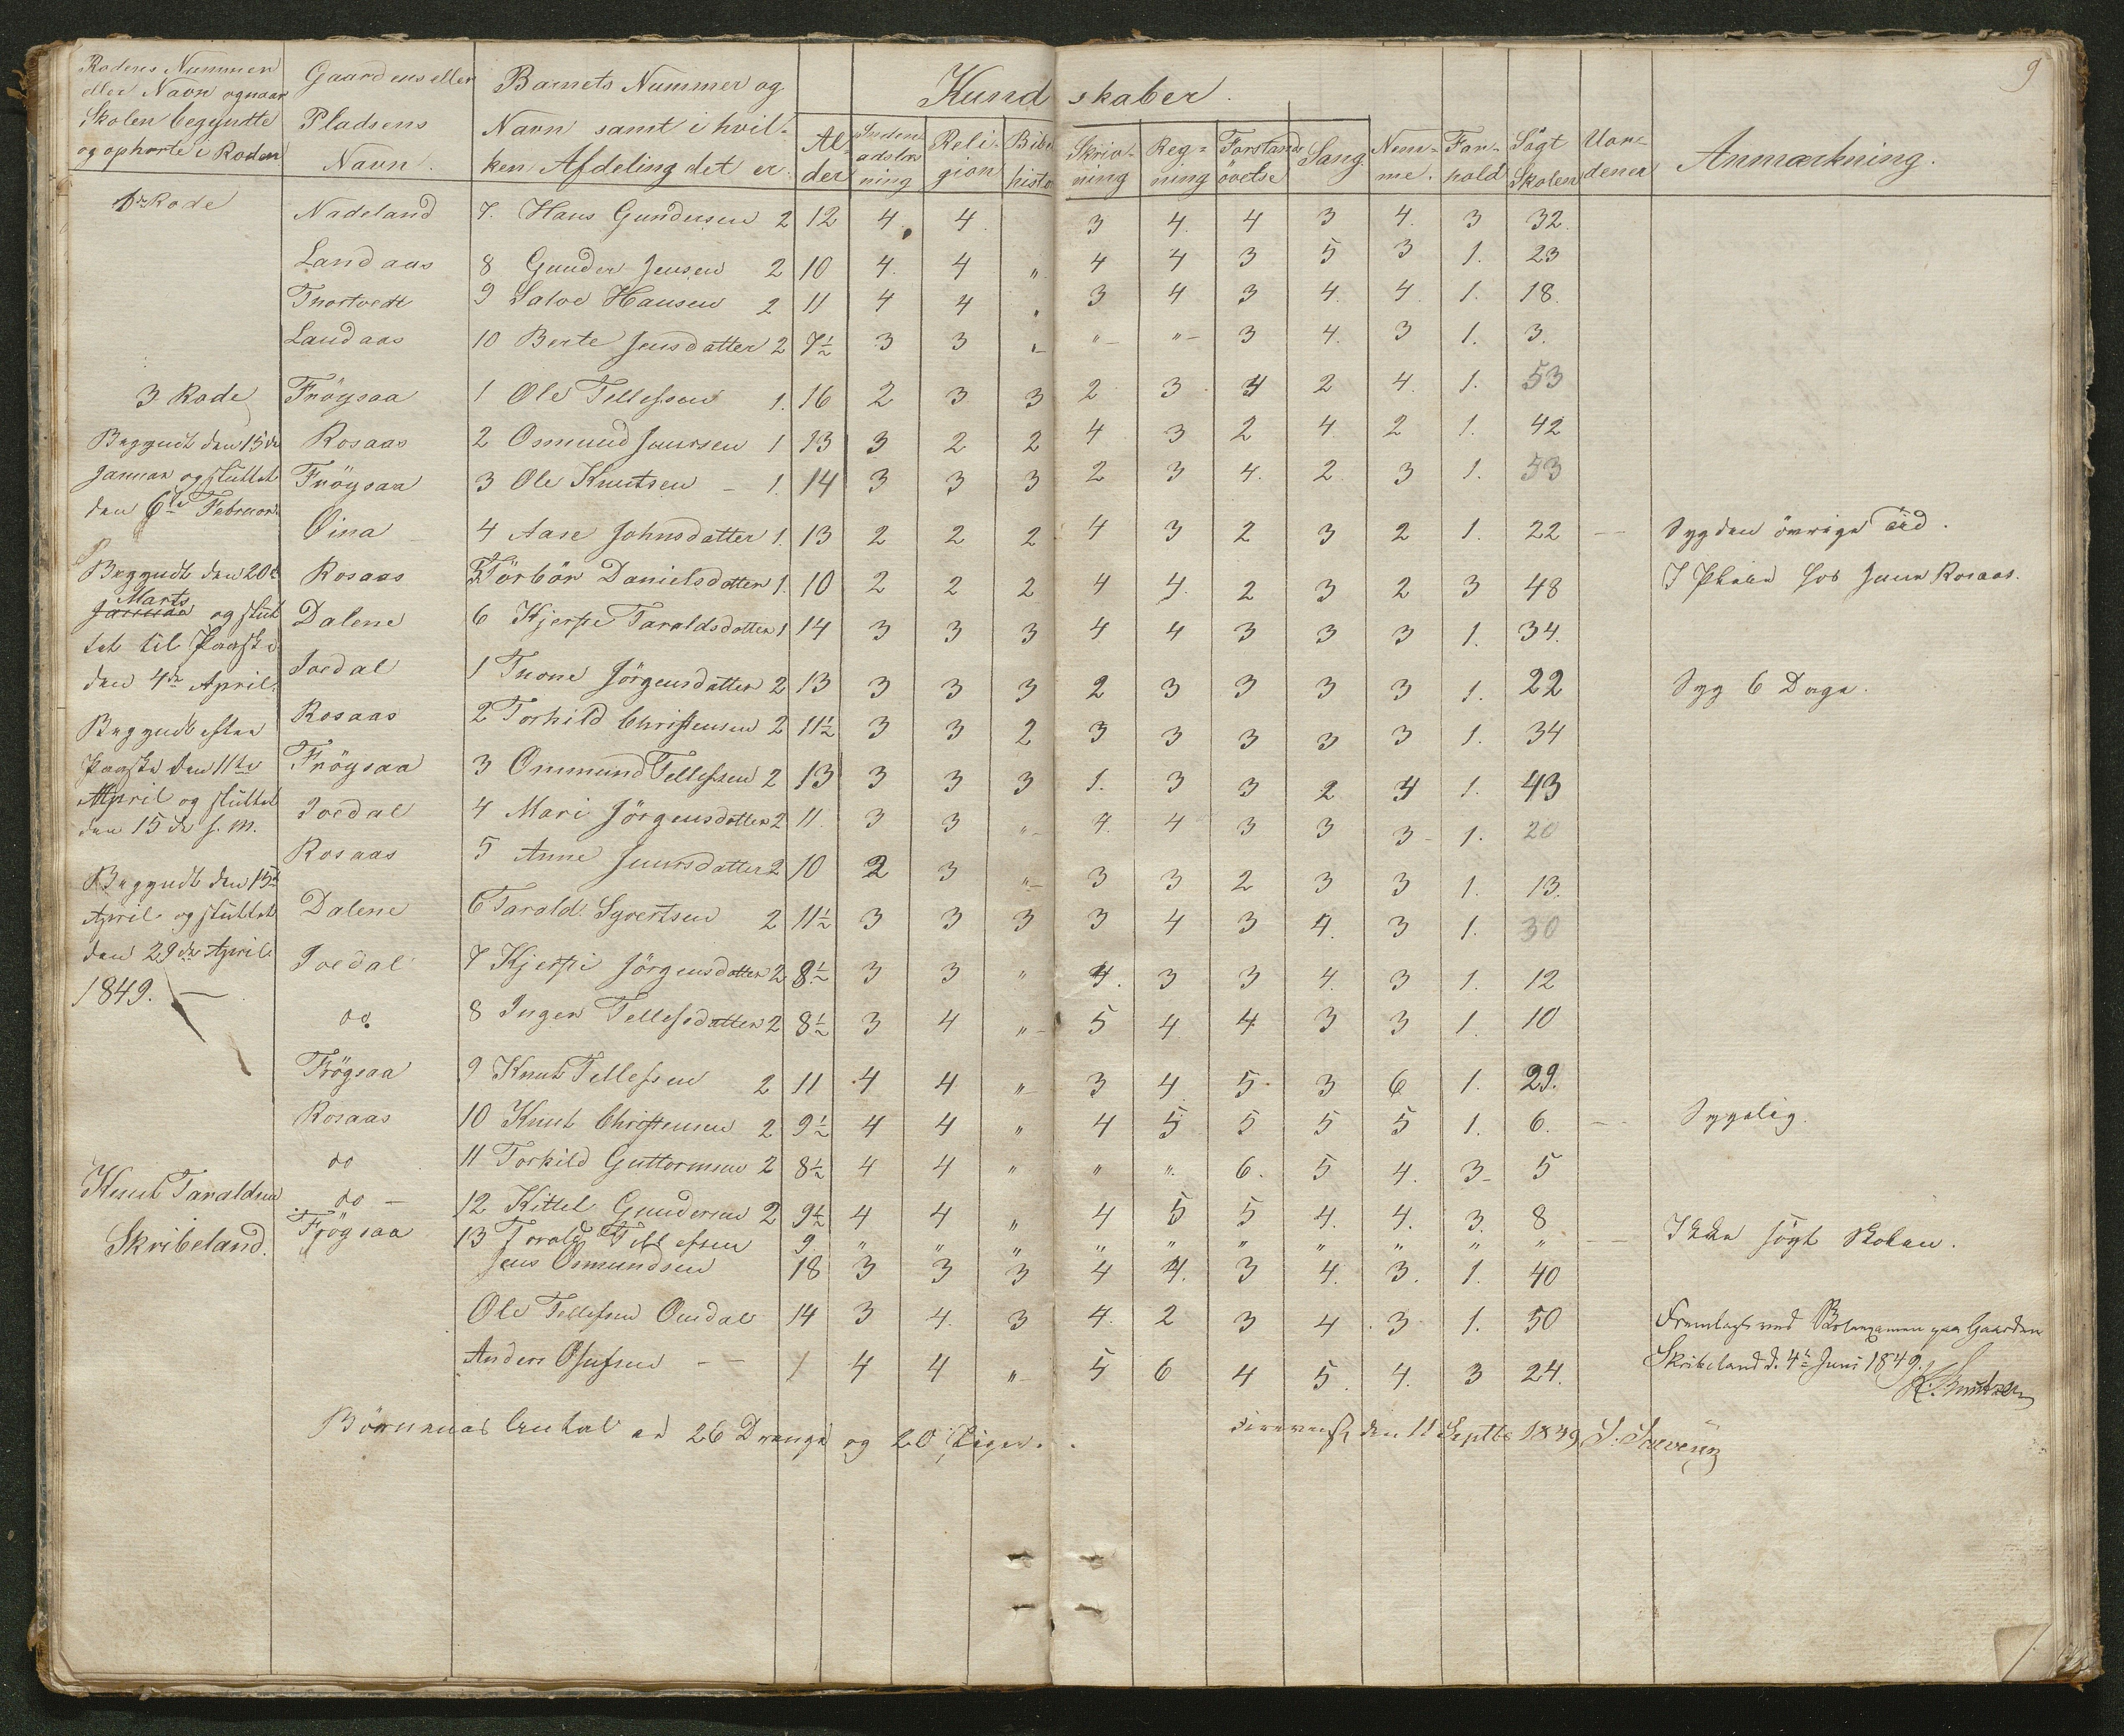 9
Rodens Nummer Gaardens eller Barnets Nummer og Kundskaber.
eller Navn og naar Pladsens Navn samt i hvil-
Skolen begyndte Navn. ken Afdeling det er. Al- Indenadslæ- Reli- Bibel Skriv- Reg- Forstands Sang Nem- For- Søgt Uor- Anmærkning.
og ophørte i Roden der ning gion histo ning ning øvelse me. hold Skolen dener
1ste Rode Nadeland 7. Hans Gundersen 2 12 4. 4. 3 4. 4 3 4. 3 32.
Landaas 8 Gunder Jensen 2 10 4. 4 „ 4 4 3 5 3 1. 23
Trostvedt 9 Salve Hansen 2 11 4 4 „ 3 4 3 4. 4. 1. 18.
Landaas 10 Berte Jensdatter 2 7½ 3 3 „ „ „ 3 4. 3 1. 3.
3 Rode Frøysaa 1 Ole Tellefsen 1. 16 2 3 3 2 3 4 2 4. 1. 53
Begyndt den 15de Rosaas 2 Ommund Juursen 1 13 3 2 2 4 3 2 4. 2 1. 42
Januar og sluttet Frøysaa 3 Ole Knutsen – 1. 14 3 3 3 2 3 4. 2 3 1. 53
den 6te Februar.
Oina 4 Aase Johnsdatter 1. 13 2 2 2 4 3 2 3 2 1. 22 – Syg den øvrige Tid.
Begyndt den 20de Rosaas 5 Tørbør Danielsdatter 1. 10 2 2 2 4 4. 2 3 2 3 48 I Pleie hos Juur Rosaas.
Marts
Januar og slut Dalene 6 Kjerste Taraldsdatter 1 14 3 3 3 4 4 3 3 3 1. 34.
tet til Paaske
den 4de April. Joedal 1 Trone Jørgensdatter 2 13 3 3 3 2 3 3 3 3 1. 22 Syg 6 Dage.
Begyndt efter Rosaas 2 Torkild Christensen 2 11½ 3 3 2 3 3 3 3 3 1. 34
Paaske den 11te Frøysaa 3 Ommund Tellefsen 2 13 3 3 3 1. 3 3 2 4 1. 43
April og sluttet Joedal 4 Mari Jørgensdatter 2 11. 3 3 „ 4. 4 3 3 3 1. 20
den 15de s. M.
Rosaas 5 Anne Juursdatter 2 10 2 3 „ 3 3 2 3 3 1. 13.
Begyndt den 15de
April og sluttet Dalene 6 Tarald Syvertsen 2 11½ 3 3 3 3 4 3 4. 3 1. 30
den 29de April Joedal 7 Kjersti Jørgensdatter 2 8½ 3 3 „ 4. 3 3 4. 3 1. 12
1849. –
do. 8 Inger Tellefsdatter 2 8½ 3 4 „ 5 4 4 3 3 1. 10
Frøysaa 9 Knut Tellefsen 2 11 4 4 „ 3 4 5 3 6 1. 29.
Rosaas 10 Knut Christensen 2 9½ 4 4 „ 4 5 5 5 5 1. 6. – Sygelig.
do 11 Torkild Guttormsen 2 8½ 4 4 „ „ „ 6. 5 4. 3 5
Knut Taraldsen do – 12 Kittel Gundersen 2 9½ 4 4 „ 4 5 5 4. 4. 3. 8
Skribeland. Frøysaa 13 Torald Tellefsen 9. „ „ „ „ „ „ „ „ „ „ – Ikke søgt Skolen.
Jens Ommundsen 18 3 3 3 4 4. 3 4. 3. 1. 40
Ole Tellefsen Omdal 14 3 4. 3 4. 2 3 4 3 1. 50 Fremlagt ved Examen paa Gaarden
Anders Olufsen – – 4 4 „ 5 6 4 5. 4. 3 24. Skribeland d. 4de Juni 1849.
K. Knutzen
Børnenes Antal er 26 Drenge og 20 Piger. den 11 Septbr 1849